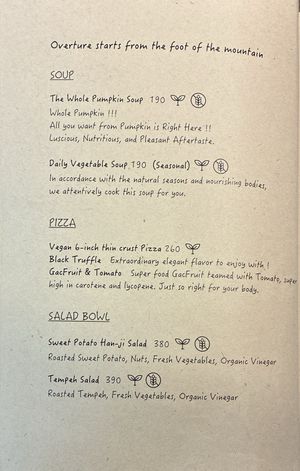 Overture starts from the foot of the mountain
SOUP
The Whole Pumpkin Soup 190
Whole Pumpkin !!!
All you want from Pumpkin is Right Here !!
Luscious, Nutritious, and Pleasant Aftertaste.
Daily Vegetable Soup 190 (Seasonal)
In accordance with the natural seasons and nourishing bodies,
we attentively cook this soup for you.
PIZZA
Vegan 6-inch thin crust Pizza 260
Black Truffle Extraordinary elegant flavor to enjoy with !
GacFruit & Tomato Super food GacFruit teamed with Tomato, super
high in carotene and lycopene. Just so right for your body.
SALAD BOWL
Sweet Potato Han-ji Salad 380
Roasted Sweet Potato, Nuts, Fresh Vegetables, Organic Vinegar
Tempeh Salad 390
Roasted Tempeh, Fresh Vegetables, Organic Vinegar